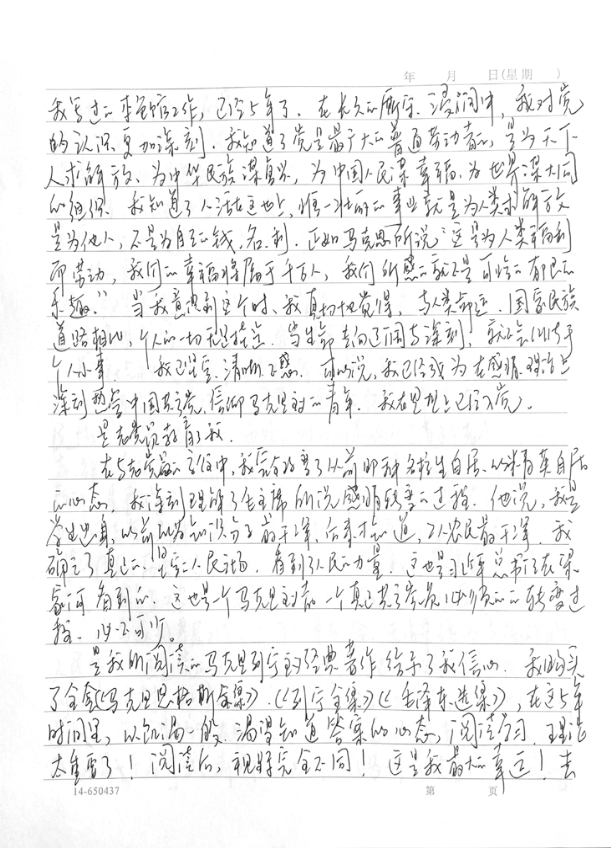 年 月 日(星期 )
我 作,已经5年了。在长久的 中,我对党
的认识更加深刻。我知道了党是最广大的普通劳动者的,是为天下
人求解放、为中华民族谋复兴、为中国人民谋幸福、为世界谋大同
的组织。我知道了人活在这世上,唯一 的事业就是为人类求解放
是为他人,不是为自己的钱、名、利。正如马克思所说"这是为人类福利
而劳动,我们的幸福将属于千百人,我们所感到的就不是可怜的 的
乐趣。"当我意识到这个时,我真切地觉得,与人类命运、国家民族
道路相比,个人的一切 。当生命走向 与深刻,就 于
个人小事。我已坚定、清晰、不惑。可以说,我已经成为在感情、理论上
深刻 中国共产党、信仰马克思主义的青年。我在思想上已经入党。
是老党员教育了我。
在与老党员的 中,我 改变了以前那种 生自居、以 自居
的心态。我深刻理解了毛主席所说感情转变的过程。他说,我是
学生出身,以前以为知识分子最干净,后来才知道,工人农民最干净。我
确立了真正的坚定人民立场,看到了人民的力量。这也是习近平总书记在梁
家河看到的。这也是一个马克思主义者、一个真正共产党员 的转变过
程。必不可少。
是我所阅读的马克思列宁主义经典著作给予了我信心。我购买
了全套《马克思恩格斯全集》、《列宁全集》《毛泽东选集》,在这5年
时间里,以饥渴一般、渴得知道答案的心态,阅读学习。理论
太重要了!阅读后,视野完全不同!这是我最大的幸运!去
14-650437 第 页